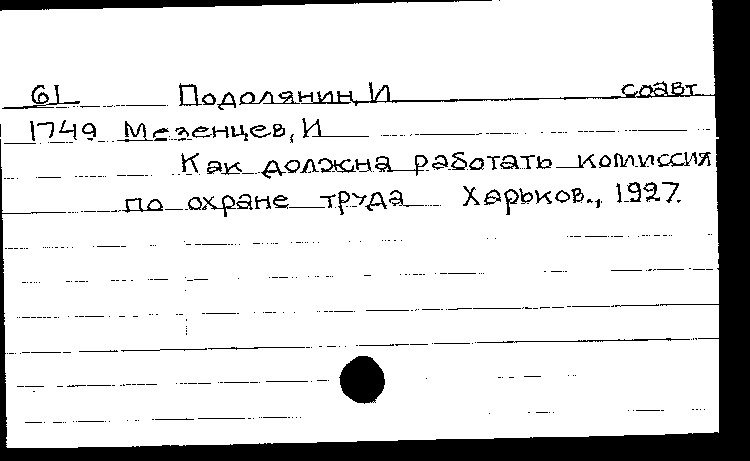 61 Подолянин, И соавт
1749 Мезенцев, И
Как должна работать комиссия
по охране труда Харьков., 1927.